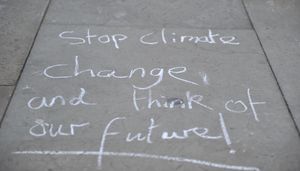 Stop Climate
change,
and think of
our future!